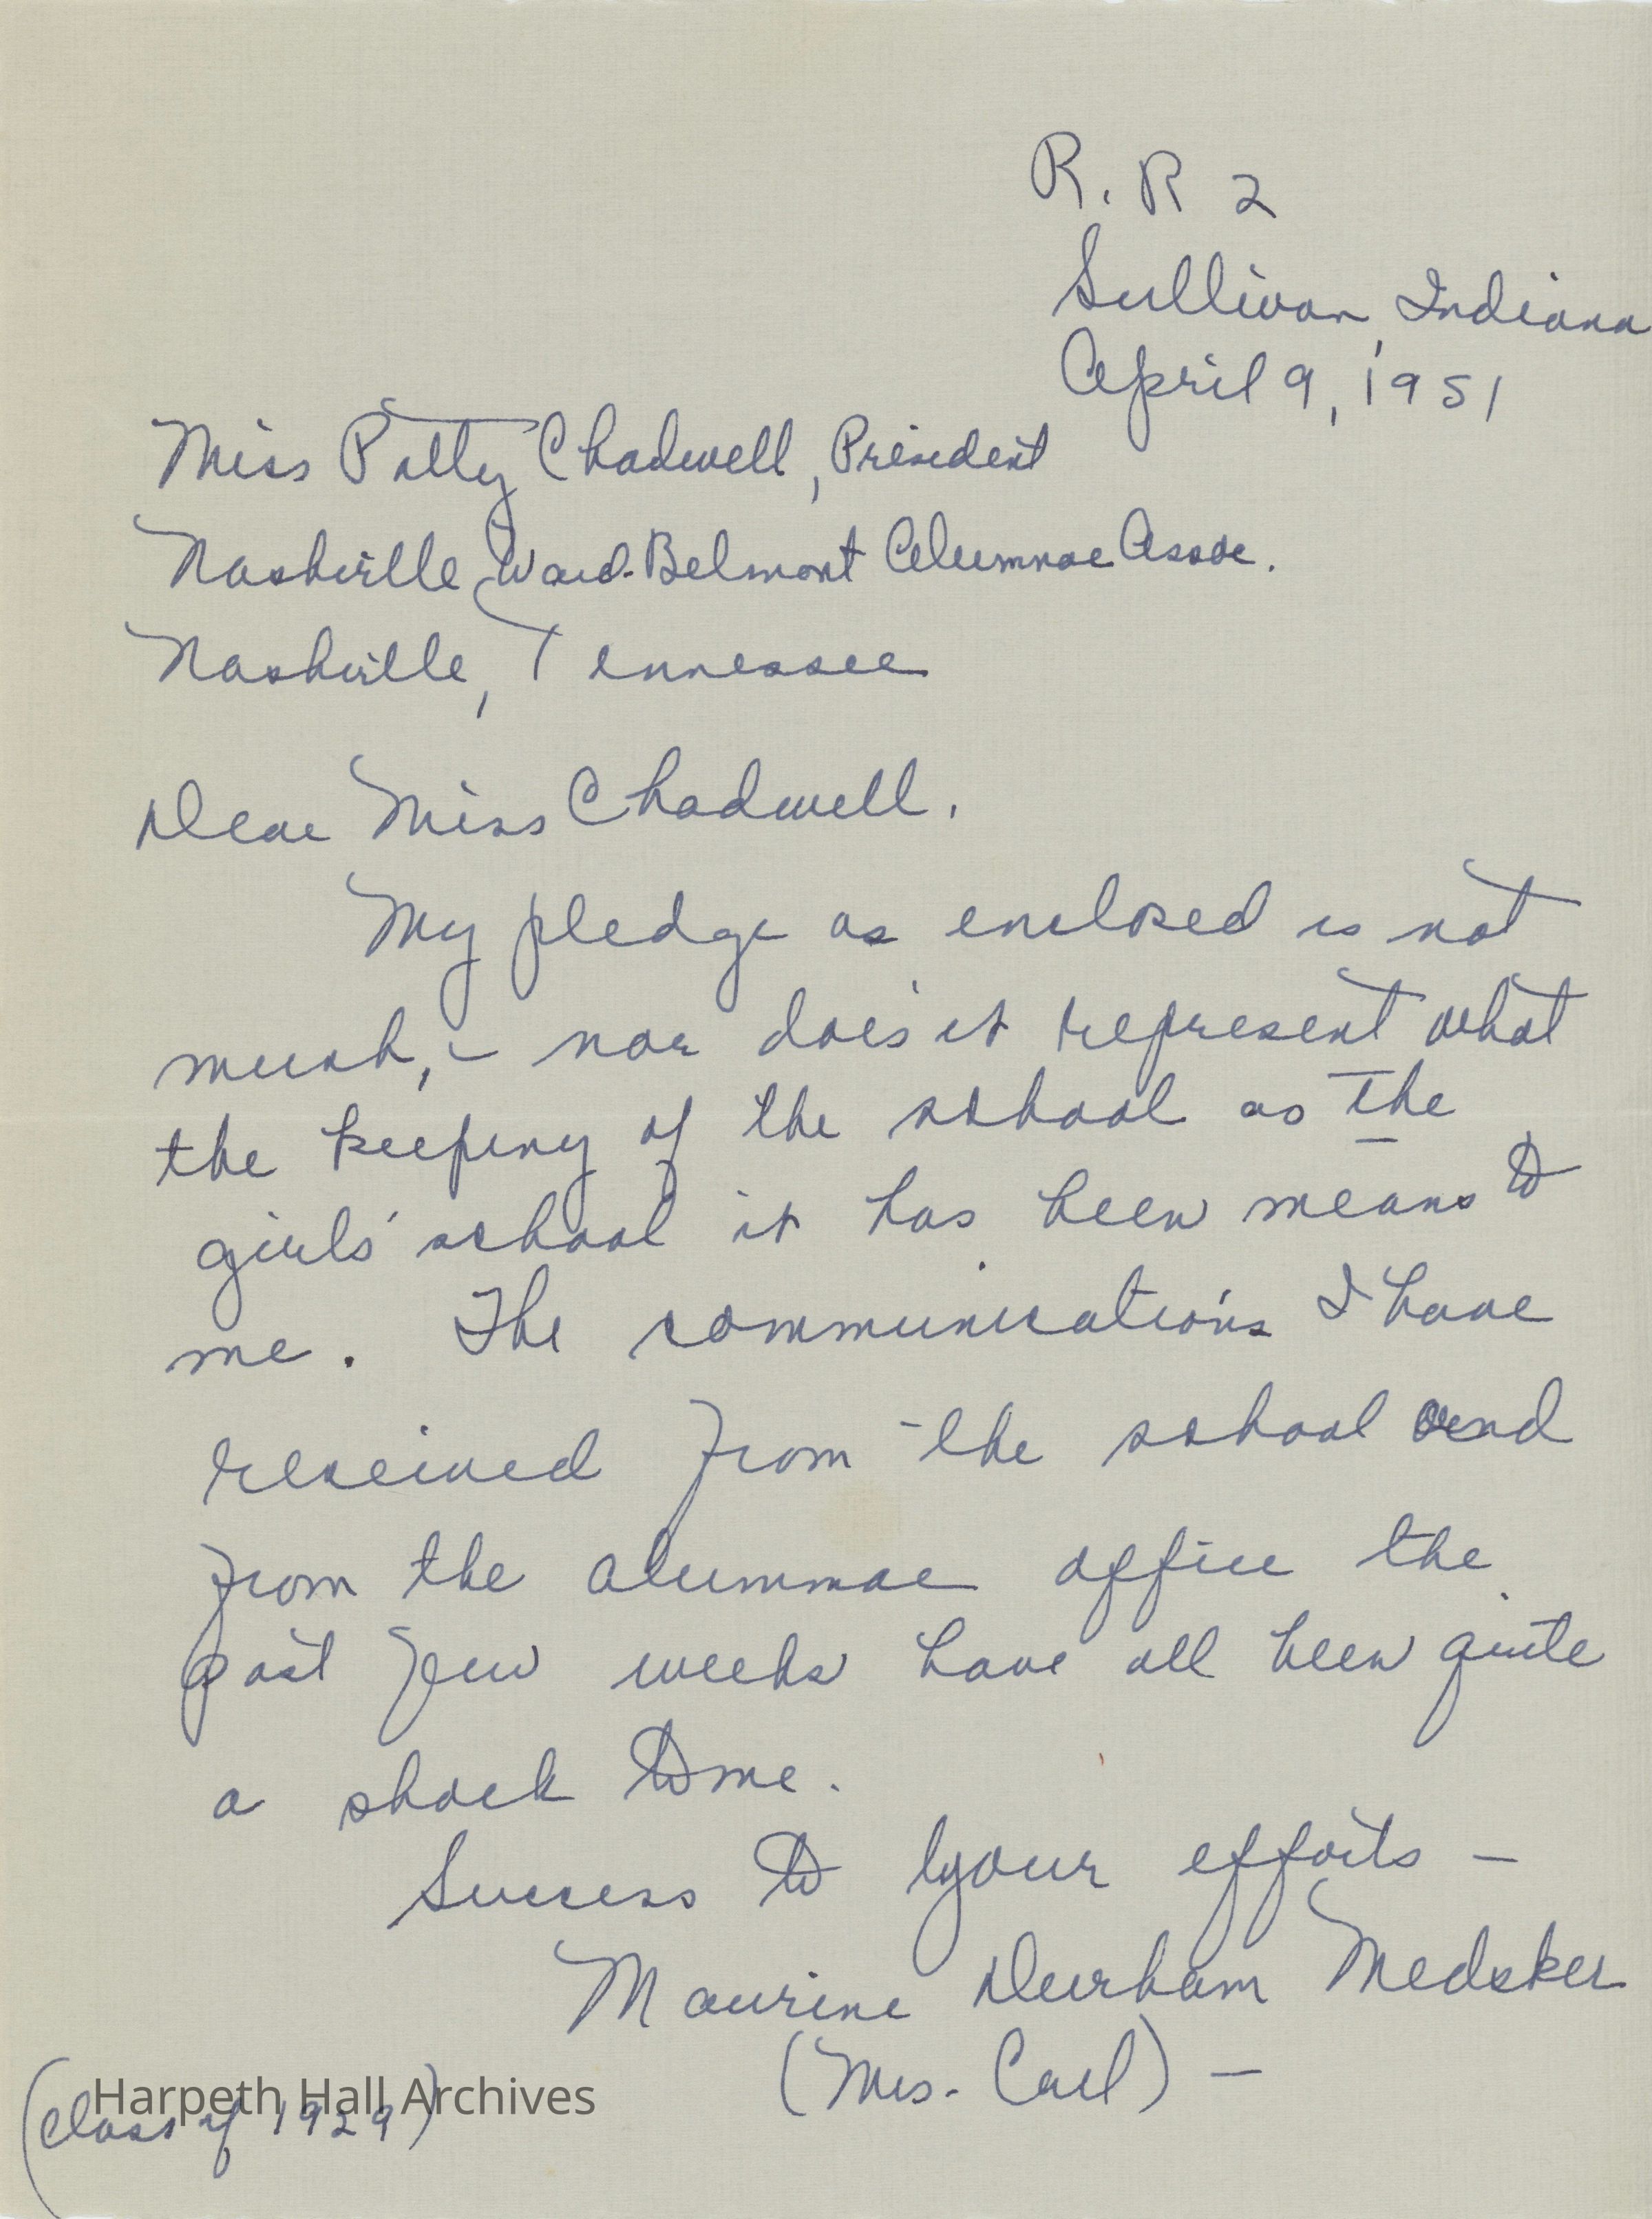 R. R 2
Sullivan, Indiana
April 9, 1951
Miss Patty Chadwell, President
Nashville Ward-Belmont Alumnae Assoc.
Nashville, Tennessee
Dear Miss Chadwell,
My pledge as enclosed is not
much, - nor does it represent what
the keeping of the school as the
girls' school it has been means to
me. The communications I have
received from the school and
from the alumnae office the
past few weeks have all been quite
a shock to me.
Success to your efforts -
Maurine Durham Medsker
(Mrs. Carl) -
Harpeth Hall Archives
(Class of 1929)